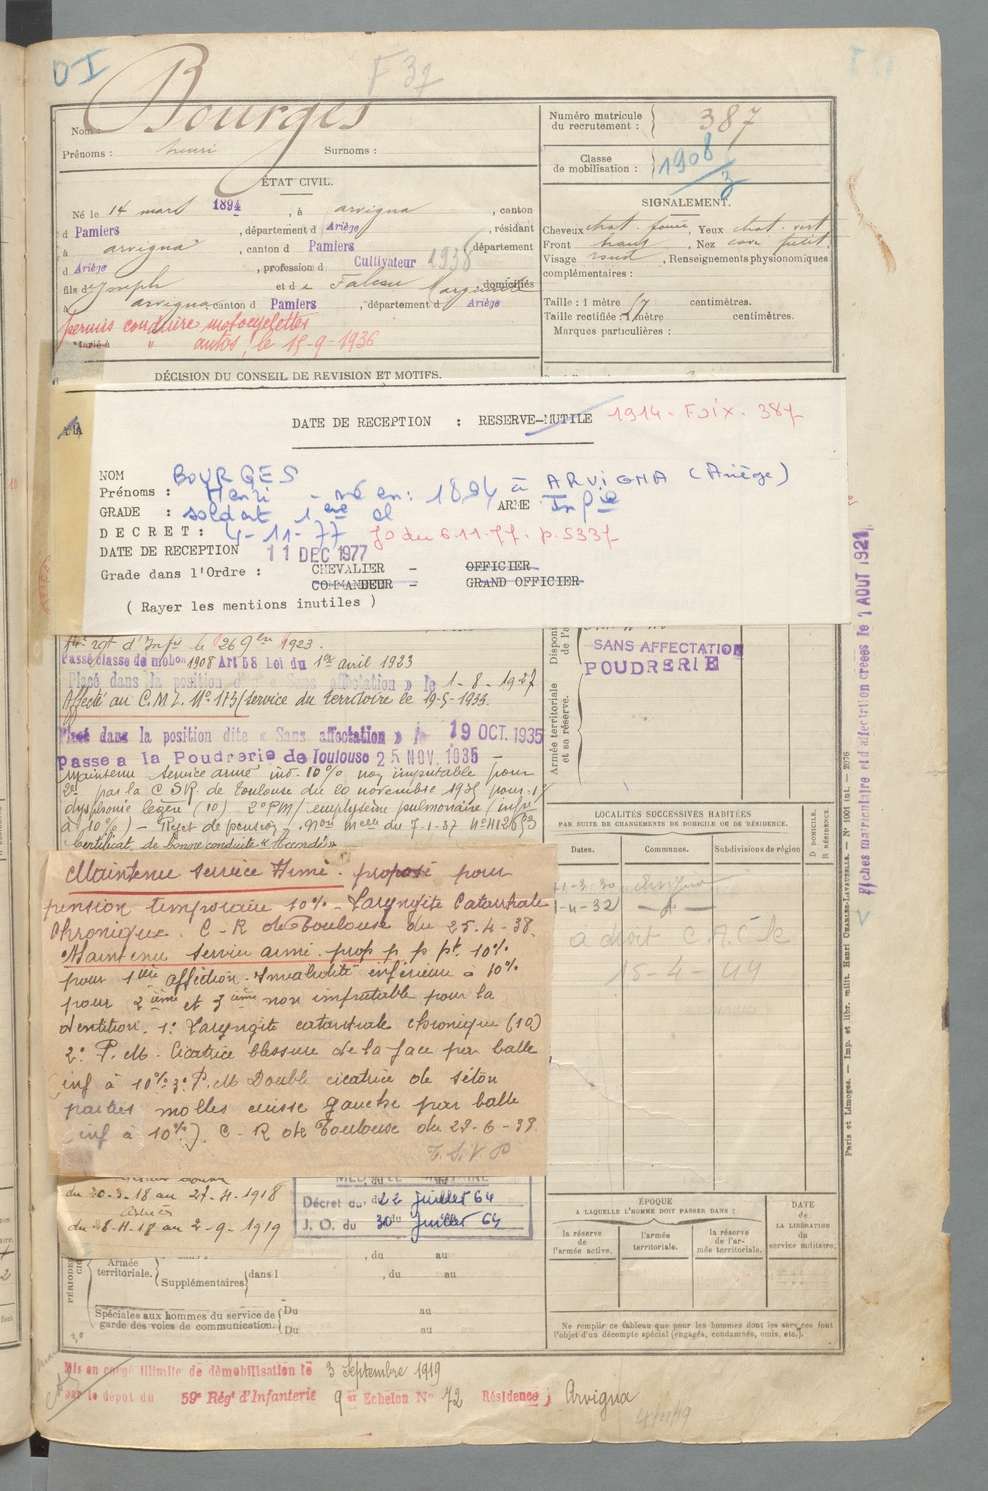 DI
F 37
Nom : Bourges
Prénoms : henri Surnoms :
Numéro matricule du recrutement : 387
Classe de mobilisation : 1908/3
ÉTAT CIVIL.
Né le 14 mars 1894, à arvigna, canton
d Pamiers, département d Ariège, résidant
à arvigna, canton d Pamiers département
d Ariège, profession d Cultivateur 1938
fils de Joseph et de domiciliés
à arvigna, canton d Pamiers, département d Ariège
permis conduire motocyclettes
Marié à " autos, le 15-9-1936
SIGNALEMENT.
Cheveux chat. foncé, Yeux chat. vert
Front haut, Nez cave petit,
Visage rond, Renseignements physionomiques
complémentaires :
Taille : 1 mètre 57 centimètres.
Taille rectifiée : 1 mètre centimètres.
Marques particulières :
DÉCISION DU CONSEIL DE REVISION ET MOTIFS.
DATE DE RECEPTION : RESERVE-MUTILE 1914-Foix-387
NOM BOURGES
Prénoms : Henri - né en : 1894 à ARVIGNA (Ariège)
GRADE : soldat 1ère cl ARME Infie
DECRET : 4-11-77 JO du 6.11.77. p.5337
DATE DE RECEPTION 11 DEC 1977
Grade dans l'Ordre : CHEVALIER - OFFICIER
COMMANDEUR - GRAND OFFICIER
( Rayer les mentions inutiles )
rgt d'Infie le 26 9bre 1923.
Passé classe de mobon 1908 Art 58 Loi du 1er avril 1923
Placé dans la position dite « Sans affectation » le 1-8-1927
Affecté au C.M.I. No 173 (service du territoire le 19-5-1933.
Placé dans la position dite « Sans affectation » le 19 OCT. 1935
Passé à la Poudrerie de Toulouse 25 NOV. 1935
Maintenu service armé inv. 10% non imputable pour
2° par la C.S.R. de Toulouse du 20 novembre 1935 pour : 1°/
dysphonie légère (10) - 2° PM/ emphysème pulmonaire (infr
à 10%) - Rejet de pension
Certificat de bonne conduite « Accordé »
SANS AFFECTATION
POUDRERIE
Armée territoriale et sa réserve.
Fiches matriculaire et d'affectation créées le 1 AOUT 1921
LOCALITÉS SUCCESSIVES HABITÉES
PAR SUITE DE CHANGEMENTS DE DOMICILE OU DE RÉSIDENCE.
Dates. Communes. Subdivisions de région D DOMICILE. R RÉSIDENCE.
1-3-30 Arvigna
1-4-32
a droit C.A.C
15-4-44
Maintenu service Armé. proposé pour
pension temporaire 10% - Laryngite Catarrhale
Chronique. C-R de Toulouse du 25-4-38.
Maintenu service armé. prop p. p pt. 10%
pour 1ère affection. Invalidité inférieure à 10%
pour 2ième et 3ième non imputable pour la
dentition. 1: Laryngite catarrhale chronique (10)
2: P.M. Cicatrice blessure de la face par balle
(inf à 10% 3: P.M Double cicatrice de séton
parties molles cuisse gauche par balle
(inf à 10%). C-R de Toulouse du 28-6-39.
T.S.V.P
du 30-3-18 au 27-11-1918
Armées
du 28-11-18 au 2-9-1919
MEDAILLE MILITAIRE
Décret du 22 juillet 64
J. O. du 30 juillet 64
Armée territoriale. Supplémentaires dans l , du au
, du au
Spéciales aux hommes du service de garde des voies de communication. Du au
Du au
ÉPOQUE
A LAQUELLE L'HOMME DOIT PASSER DANS :
la réserve de l'armée active. l'armée territoriale. la réserve de l'armée territoriale.
DATE de LA LIBÉRATION du service militaire.
Ne remplir ce tableau que pour les hommes dont les services font
l'objet d'un décompte spécial (engagés, condamnés, omis, etc.).
Paris et Limoges. — Imp. et libr. milit. Henri CHARLES-LAVAUZELLE.
Mis en congé illimité de démobilisation le 3 Septembre 1919
par le dépôt du 59e Régt d'Infanterie 9e Echelon No 72 Résidence ) Arvigna